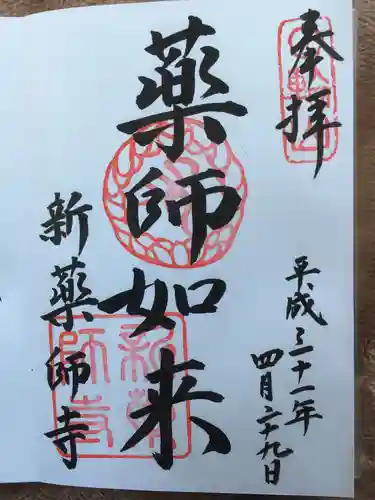 奉拝
平成三十一年
四月二十九日
薬師如来
新薬師寺